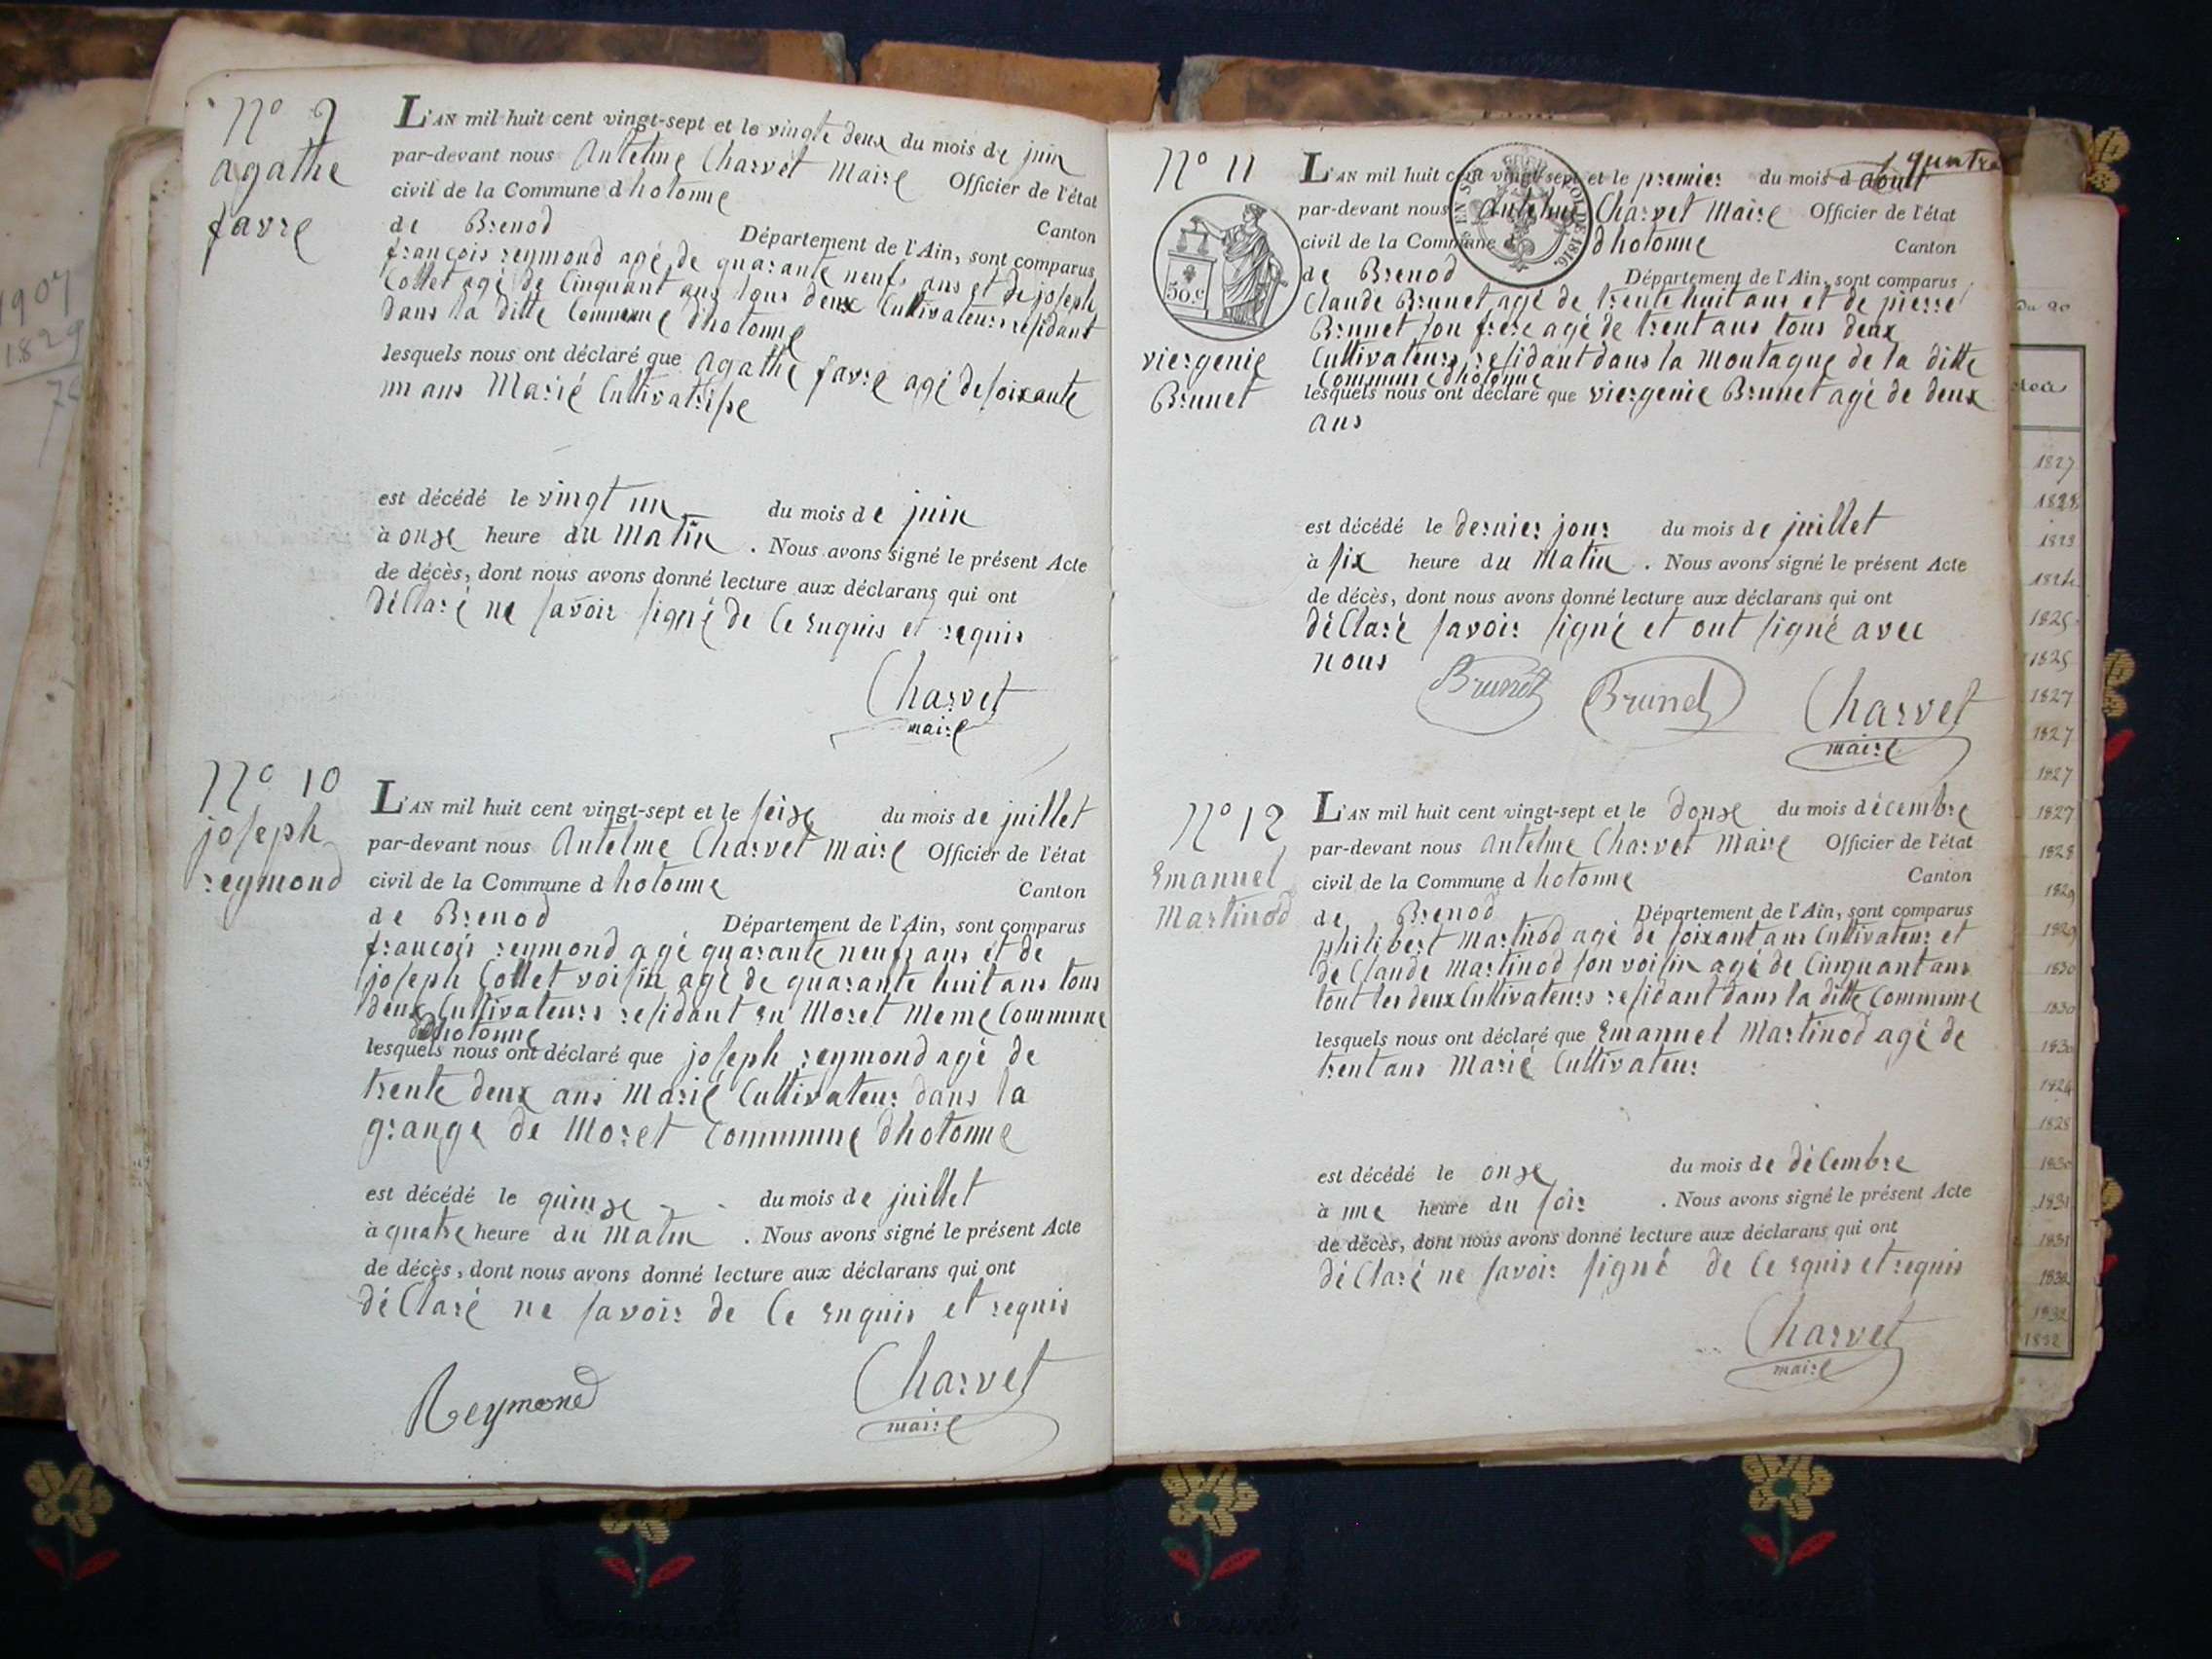 N° 9
agathe
favre
L'AN mil huit cent vingt-sept et le vingte deux du mois de juin
par-devant nous Antelme Charvet Maire Officier de l'état
civil de la Commune d hotonne Canton
de Brenod Département de l'Ain, sont comparus
françois reymond agé de quarante neufs ans et de joseph
Collet agé de Cinquant ans tous deux Cultivateurs residant
dans la ditte Commune dhotonne
lesquels nous ont déclaré que Agathe favre agé de soixante
un ans Marié Cultivatrise
est décédé le vingt un du mois de juin
à onze heure du Matin . Nous avons signé le présent Acte
de décès, dont nous avons donné lecture aux déclarans qui ont
déClaré ne savoir signé de Ce enquis et requis
Charvet
maire
N° 10
joseph
reymond
L'AN mil huit cent vingt-sept et le seize du mois de juillet
par-devant nous Antelme Charvet Maire Officier de l'état
civil de la Commune d hotonne Canton
de Brenod Département de l'Ain, sont comparus
françois reymond agé quarante neufs ans et de
joseph Collet voisin agé de quarante huit ans tous
deux Cultivateurs residant en Moret Meme Commune
dhotonne
lesquels nous ont déclaré que joseph reymond agé de
trente deux ans Marié Cultivateur dans la
grange de Moret Commune dhotonne
est décédé le quinze du mois de juillet
à quatre heure du Matin . Nous avons signé le présent Acte
de décès, dont nous avons donné lecture aux déclarans qui ont
déClaré ne savoir de Ce enquis et requis
Reymond
Charvet
maire
quatre
N° 11
viergenie
Brunet
50 c
L'AN mil huit cent vingt-sept et le premier du mois d aout
par-devant nous Antelme Charvet Maire Officier de l'état
civil de la Commune d dhotonne Canton
de Brenod Département de l'Ain, sont comparus
Claude Brunet agé de trente huit ans et de pierre
Brunet son frere agé de trent ans tous deux
Cultivateurs residant dans la Montagne de la ditte
Commune dhotonne
lesquels nous ont déclaré que viergenie Brunet agé de deux
ans
est décédé le dernier jour du mois de juillet
à six heure du Matin . Nous avons signé le présent Acte
de décès, dont nous avons donné lecture aux déclarans qui ont
déClaré savoir signé et ont signé avec
nous
Brunet Brunet Charvet
maire
N° 12
Emanuel
Martinod
L'AN mil huit cent vingt-sept et le douze du mois décembre
par-devant nous Antelme Charvet Maire Officier de l'état
civil de la Commune d hotonne Canton
de Brenod Département de l'Ain, sont comparus
philibert Martinod agé de soixant ans Cultivateur et
de Claude Martinod son voisin agé de Cinquant ans
tout les deux Cultivateurs residant dans la ditte Commune
lesquels nous ont déclaré que Emanuel Martinod agé de
trent ans Marié Cultivateur
est décédé le onze du mois de déCembre
à une heure du soir . Nous avons signé le présent Acte
de décès, dont nous avons donné lecture aux déclarans qui ont
déClaré ne savoir signé de Ce equis et requis
Charvet
maire
1907
1829
1827
1828
1825
1825
1827
1827
1827
1827
1828
1829
1829
1830
1830
1830
1828
1830
1831
1831
1832
1832